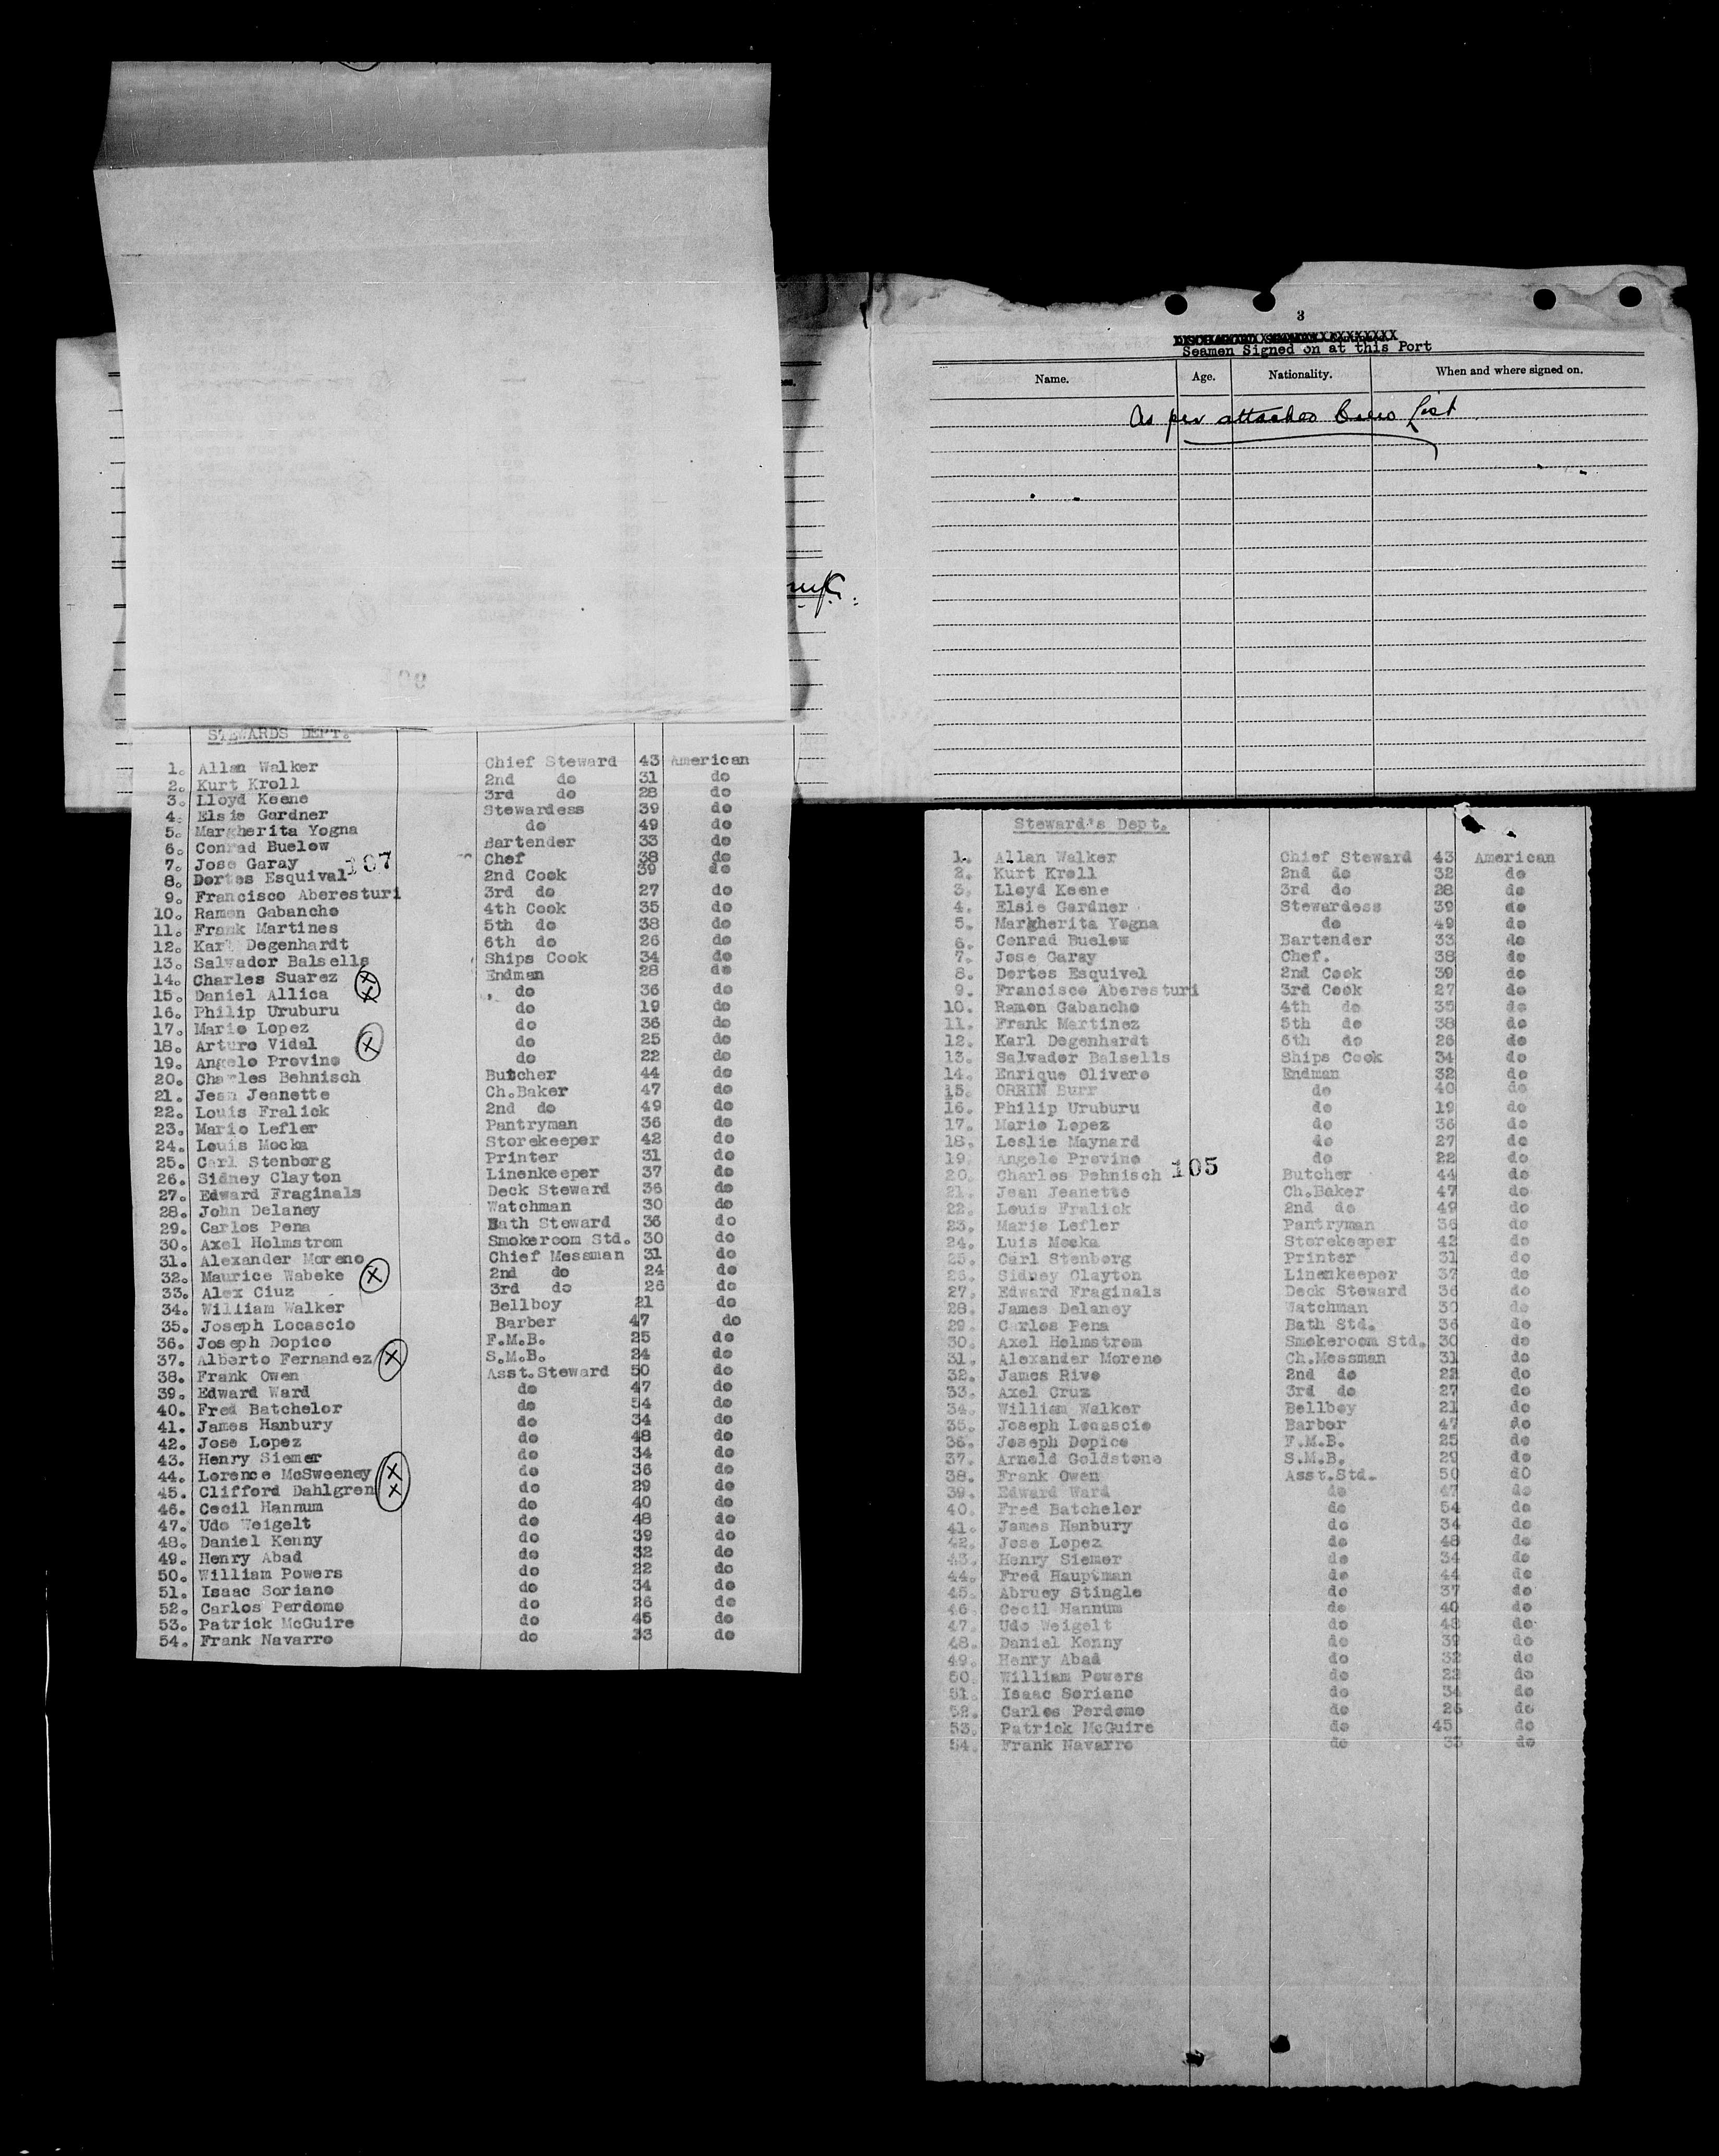 STEWARDS DEPT.
1. Allan Walker Chief Steward 43 American
2. Kurt Kroll 2nd do 31 do
3. Lloyd Keene 3rd do 28 do
4. Elsie Gardner Stewardess 39 do
5. Margherita Yogna do 49 do
6. Conrad Buelow Bartender 33 do
7. Jose Garay 107 Chef 38 do
8. Dortes Esquival 2nd Cook 39 do
9. Francisco Aberesturi 3rd do 27 do
10. Ramon Gabancho 4th Cook 35 do
11. Frank Martines 5th do 38 do
12. Karl Degenhardt 6th do 26 do
13. Salvador Balsells Ships Cook 34 do
14. Charles Suarez X Endman 28 do
15. Daniel Allica X do 36 do
16. Philip Uruburu do 19 do
17. Mario Lopez do 36 do
18. Arturo Vidal X do 25 do
19. Angelo Provino do 22 do
20. Charles Behnisch Butcher 44 do
21. Jean Jeanette Ch.Baker 47 do
22. Louis Fralick 2nd do 49 do
23. Mario Lefler Pantryman 36 do
24. Louis Mocka Storekeeper 42 do
25. Carl Stenborg Printer 31 do
26. Sidney Clayton Linenkeeper 37 do
27. Edward Fraginals Deck Steward 36 do
28. John Delaney Watchman 30 do
29. Carlos Pena Bath Steward 36 do
30. Axel Holmstrom Smokeroom Std. 30 do
31. Alexander Moreno Chief Messman 31 do
32. Maurice Wabeke X 2nd do 24 do
33. Alex Ciuz 3rd do 26 do
34. William Walker Bellboy 21 do
35. Joseph Locascio Barber 47 do
36. Joseph Dopico F.M.B. 25 do
37. Alberto Fernandez X S.M.B. 24 do
38. Frank Owen Asst.Steward 50 do
39. Edward Ward do 47 do
40. Fred Batchelor do 54 do
41. James Hanbury do 34 do
42. Jose Lopez do 48 do
43. Henry Siemer do 34 do
44. Lorence McSweeney X do 36 do
45. Clifford Dahlgren X do 29 do
46. Cecil Hannum do 40 do
47. Udo Weigelt do 48 do
48. Daniel Kenny do 39 do
49. Henry Abad do 32 do
50. William Powers do 22 do
51. Isaac Soriano do 34 do
52. Carlos Perdomo do 26 do
53. Patrick McGuire do 45 do
54. Frank Navarro do 33 do
3
Seamen Signed on at this Port
Name. Age. Nationality. When and where signed on.
As per attached Crew List
Steward's Dept.
1. Allan Walker Chief Steward 43 American
2. Kurt Kroll 2nd do 32 do
3. Lloyd Keene 3rd do 28 do
4. Elsie Gardner Stewardess 39 do
5. Margherita Yogna do 49 do
6. Conrad Buelow Bartender 33 do
7. Jose Garay Chef. 38 do
8. Dortes Esquivel 2nd Cook 39 do
9. Francisco Aberesturi 3rd Cook 27 do
10. Ramon Gabancho 4th do 35 do
11. Frank Martinez 5th do 38 do
12. Karl Degenhardt 6th do 26 do
13. Salvador Balsells Ships Cook 34 do
14. Enrique Olivero Endman 32 do
15. ORRIN Burr do 40 do
16. Philip Uruburu do 19 do
17. Mario Lopez do 36 do
18. Leslie Maynard do 27 do
19. Angelo Provino do 22 do
20. Charles Pehnisch 105 Butcher 44 do
21. Jean Jeanette Ch.Baker 47 do
22. Louis Fralick 2nd do 49 do
23. Mario Lefler Pantryman 36 do
24. Luis Mocka Storekeeper 42 do
25. Carl Stenborg Printer 31 do
26. Sidney Clayton Linenkeeper 37 do
27. Edward Fraginals Deck Steward 36 do
28. James Delaney Watchman 30 do
29. Carlos Pena Bath Std. 36 do
30. Axel Holmstrom Smokeroom Std. 30 do
31. Alexander Moreno Ch.Messman 31 do
32. James Rivo 2nd do 22 do
33. Axel Cruz 3rd do 27 do
34. William Walker Bellboy 21 do
35. Joseph Locascio Barber 47 do
36. Joseph Dopico F.M.B. 25 do
37. Arnold Goldstone S.M.B. 29 do
38. Frank Owen Asst.Std. 50 dO
39. Edward Ward do 47 do
40. Fred Batchelor do 54 do
41. James Hanbury do 34 do
42. Jose Lopez do 48 do
43. Henry Siemer do 34 do
44. Fred Hauptman do 44 do
45. Abruey Stingle do 37 do
46. Cecil Hannum do 40 do
47. Udo Weigelt do 48 do
48. Daniel Kenny do 39 do
49. Henry Abad do 32 do
50. William Powers do 22 do
51. Isaac Soriano do 34 do
52. Carlos Perdomo do 26 do
53. Patrick McGuire do 45 do
54. Frank Navarro do 33 do